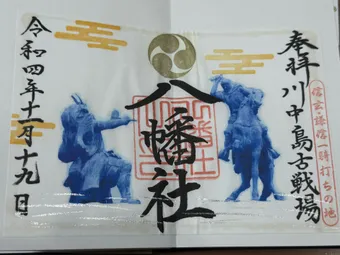 奉拝川中島古戦場
信玄謙信一騎打ちの地
八幡社
令和四年十一月十九日